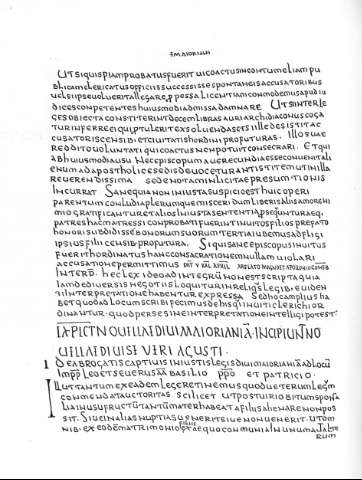 EMAIORIANI
UT SIQUISPIAM PROBATUS FUERIT UI COACTUS IN EO TITUM
BLICAM CLERICATUS OFFICIIS SUCCESSISSE SPONTANEIS ACCUSATORIBUS
UEL SI IPSE UOLUERIT ALLEGARE LICENTIAM COMMODEMUS APUD IU
DICES COMPETENTES HUIUSMODI ADMISSA DAMNARE UT SI INTER LE
GES OBIECTA CONSTITERINT DECEM LIBRAS AURI ARCHIDIACONUS COGA
TUR INFERRE EI QUI PERTULERIT EXSOLUENDAS ET SI ILLE DESISTIT AC
CUSATORIS CENSIB ET CIUITATIS HORDINI PROFUTURAS ILLO SUAE
REDDITO UOLUNTATI QUI COACTUS NON POTUIT CONSECRARI ET QUI
AB HUIUSMODI AUSU NEC EPISCOPUM AUCRECUNDIA ESSE CONUENIT ALI
ENUM AD APOSTOLICE SEDIS DEUOCETUR ANTISTITEM UT IN ILLA
REUERENDISSIMA SEDE NOTAM INLICITAE PRESUMTIONIS
INCURRAT SANE QUIA NON INIUSTA SUSPICIO EST HUIC OPERI
PARENTUM CONLUDIA PLERUMQUE MISCERI DUM LIBERIS ALIIS AMORE NI
MIO GRATIFICANTUR ET ALIOS INIUSTAS
PATRES HAC MATRES SI CONPROBATI FUERINT INUITOS FILIOS PREFATO
HONORI SUBDIDISSE BONORUM SUORUM TERTIA UIDEMUS AD FILII
IPSIUS FILII CENSIB PROFUTURA SI QUIS ANE EPISCOPUS INUITUS
FUERIT HORDINATUS HANC CONSACRATIONEM NULLAM UIOLARI
ACCUSATIONE PERMITTIMUS DAT
INTERP HEC LEX IDEO AD INTEGRUM NON EST SCRIPTA QUIA
IAM DE DIUERSIS NEGOTIIS LOQUITUR IN RELIQIS LEGIB EUIDEN
TI INTERPRETATIONE HABENTUR EXPRESSA SED HOC AMPLIUS HA
BET QUOD AD LOCUM SCRIBI FECIMUS DE HIS QUI INUITI CLERICI HOR
DINANTUR QUOD PER SE SINE INTERPRETATIONE INTELLIGI POTEST
EXPLICIT NOUILLAE DIUI MAIORIANI A INCIPIUNT NO
UILLAE DIUI SEUERI AGUSTI
I DE ABROGATIS CAPITUIS INIUSTIS LEGIS DIUI MAIORIANI A AD LOCUM
IMPP LEO ET SEUERUS AA BASILIO PPO ET PATRICIO
ILLUT TANTUM EX EADEM LEGE RETINEMUS QUOD UETERUM LEGUM
CONMENDAT AUCTORITAS SCILICET UT POST UIRI OBITUM SPONSA
LIA IN USUFRUCTU TANTUM MATER HABEAT A FILIIS ALIENARE NON POS
SIT SIUE IN ALIAS NUPTIAS UENERIT SIUE NON UENERIT UT OM
NIB EX EODEM MATRIMONIO FILIIS
RUM